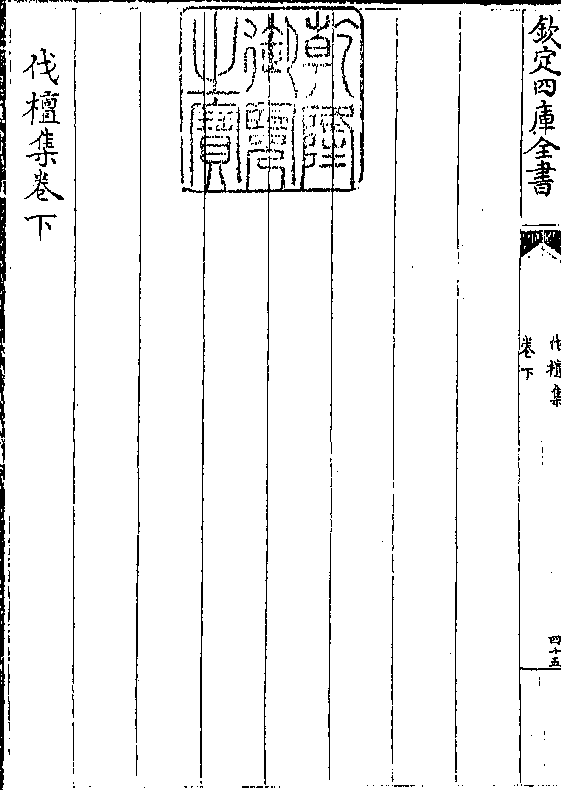 欽定四庫全書
伐檀集
卷下
四十五
乾隆御覽之寶
伐檀集卷下